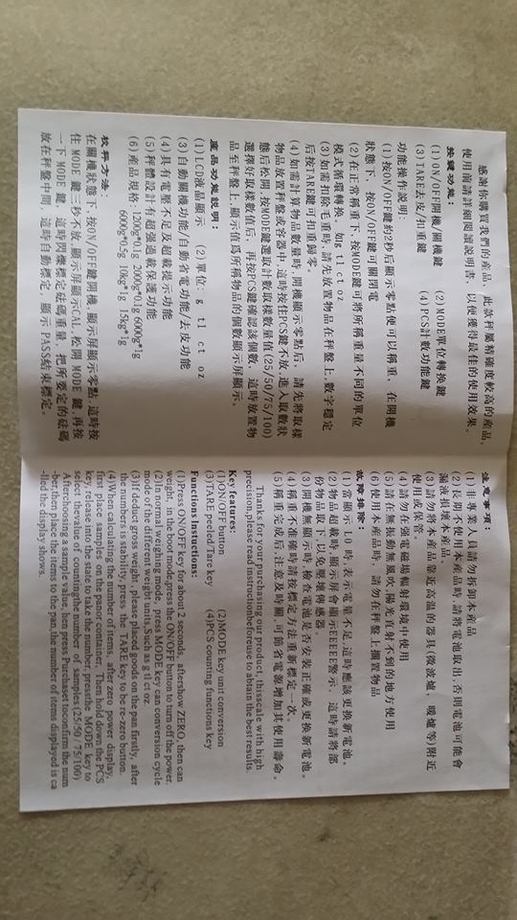 感謝你購買我們的產品，此款秤屬精確度較高的產品，
使用前請詳細閱讀說明書，以便獲得最佳的使用效果。
按鍵功能：
(1)ON/OFF開機/關機鍵 (2)MODE單位轉換鍵
(3)TARE去皮/扣重鍵 (4)PCS計數功能鍵
功能操作說明：
(1)按ON/OFF鍵約2秒后顯示零點便可以稱重，在開機
狀態下，按ON/OFF鍵可關閉電
(2)在正常稱重下，按MODE鍵可將所稱重量不同的單位
模式循環轉換，如g tl ct oz
(3)如需扣除毛重時，請先放置物品在秤盤上，數字穩定
后按TARE鍵可扣重歸零。
(4)如需計算物品數量時，開機顯示零點后，請先將取樣
物品放置秤盤或容器中，這時按住PCS鍵不放，進入取數狀
態后松開，按MODE鍵選取計數取樣數量值(25/50/75/100)
選擇好取樣數值后，再按PCS鍵確認該個數，這時放置物
品至秤盤上，顯示值爲所稱物品的個數顯示屏顯示。
産品功能說明：
(1)LCD液晶顯示 (2)單位：g tl ct oz
(3)自動關機功能/自動省電功能/去皮功能
(4)具有電壓不足及超載提示功能
(5)秤體設計有超强過載保護功能
(6)產品規格：1200g*0.1g 2000g*0.1g 6000g*1g
6000g*0.5g 10kg*1g 15kg*1g
校秤方法：
在關機狀態下，按ON/OFF鍵開機，顯示屏顯示零點，這時按
住 MODE 鍵三秒不放，顯示屏顯示CAL，松開 MODE 鍵，再按
一下 MODE 鍵，這時閃爍標定砝碼重量，把所要定的砝碼
放在秤盤中間，這時自動標定，顯示 PASS結束標定。
注意事項：
(1)非專業人員請勿拆卸本產品
(2)長期不使用本產品時，請將電池取出，否則電池可能會
漏液損壞本產品。
(3)請勿將本產品靠近高温的器具(微波爐、暖爐等)附近
使用或保管。
(4)請勿在强電磁場輻射環境中使用
(5)請在無振動無風吹、陽光直射不到的地方使用
(6)使用本產品時，請勿在秤盤上擱置物品
故障排除：
(1)當顯示 LO 時，表示電量不足，這時應該更換新電池。
(2)物品超載時，顯示屏會顯示EEEE警示，這時請將部
份物品取下，以免壓壞傳感器。
(3)開機無顯示時，檢查電池是否安裝正確或更換新電池。
(4)稱重不准確時請按標定方法重新標定一次。
(5)稱重完成后，注意及時關，可節省電源增加其使用壽命。
Thanks for your purchasing our product, thisscale with high
precision,please read instructionbeforeuse to abtain the best results.
Key features:
(1)ON/OFF button (2)MODE key unit conversion
(3)TARE peeled/Tare key (4)PCS counting functions key
Functions Instuctions:
(1)Press ON/OFF key for about 2 seconds, aftershow ZERO, then can
weight, in the boot mode,press the ON/OFF button to turn off the power
(2)In normal weighing mode , press MODE key can conversion cycle
mode of the different weight units,Such as g tl ct oz.
(3)If deduct gross weight , please placed goods on the pan firstly, after
the numbers is stability, press the TARE key to be re-zero button.
(4)When calculating the number of items, after zero power display,
first place samples in the pan or container, Then hold down the PCS
key, release into the state to take the number, press the MODE key to
select the value of counting the number of samples (25/50 /75/100)
Afterchoosing a sample value, then press Purchaset toconfirm the num
-ber,then place the items to the pan,the number of items displayed is ca
-lled the display shows.